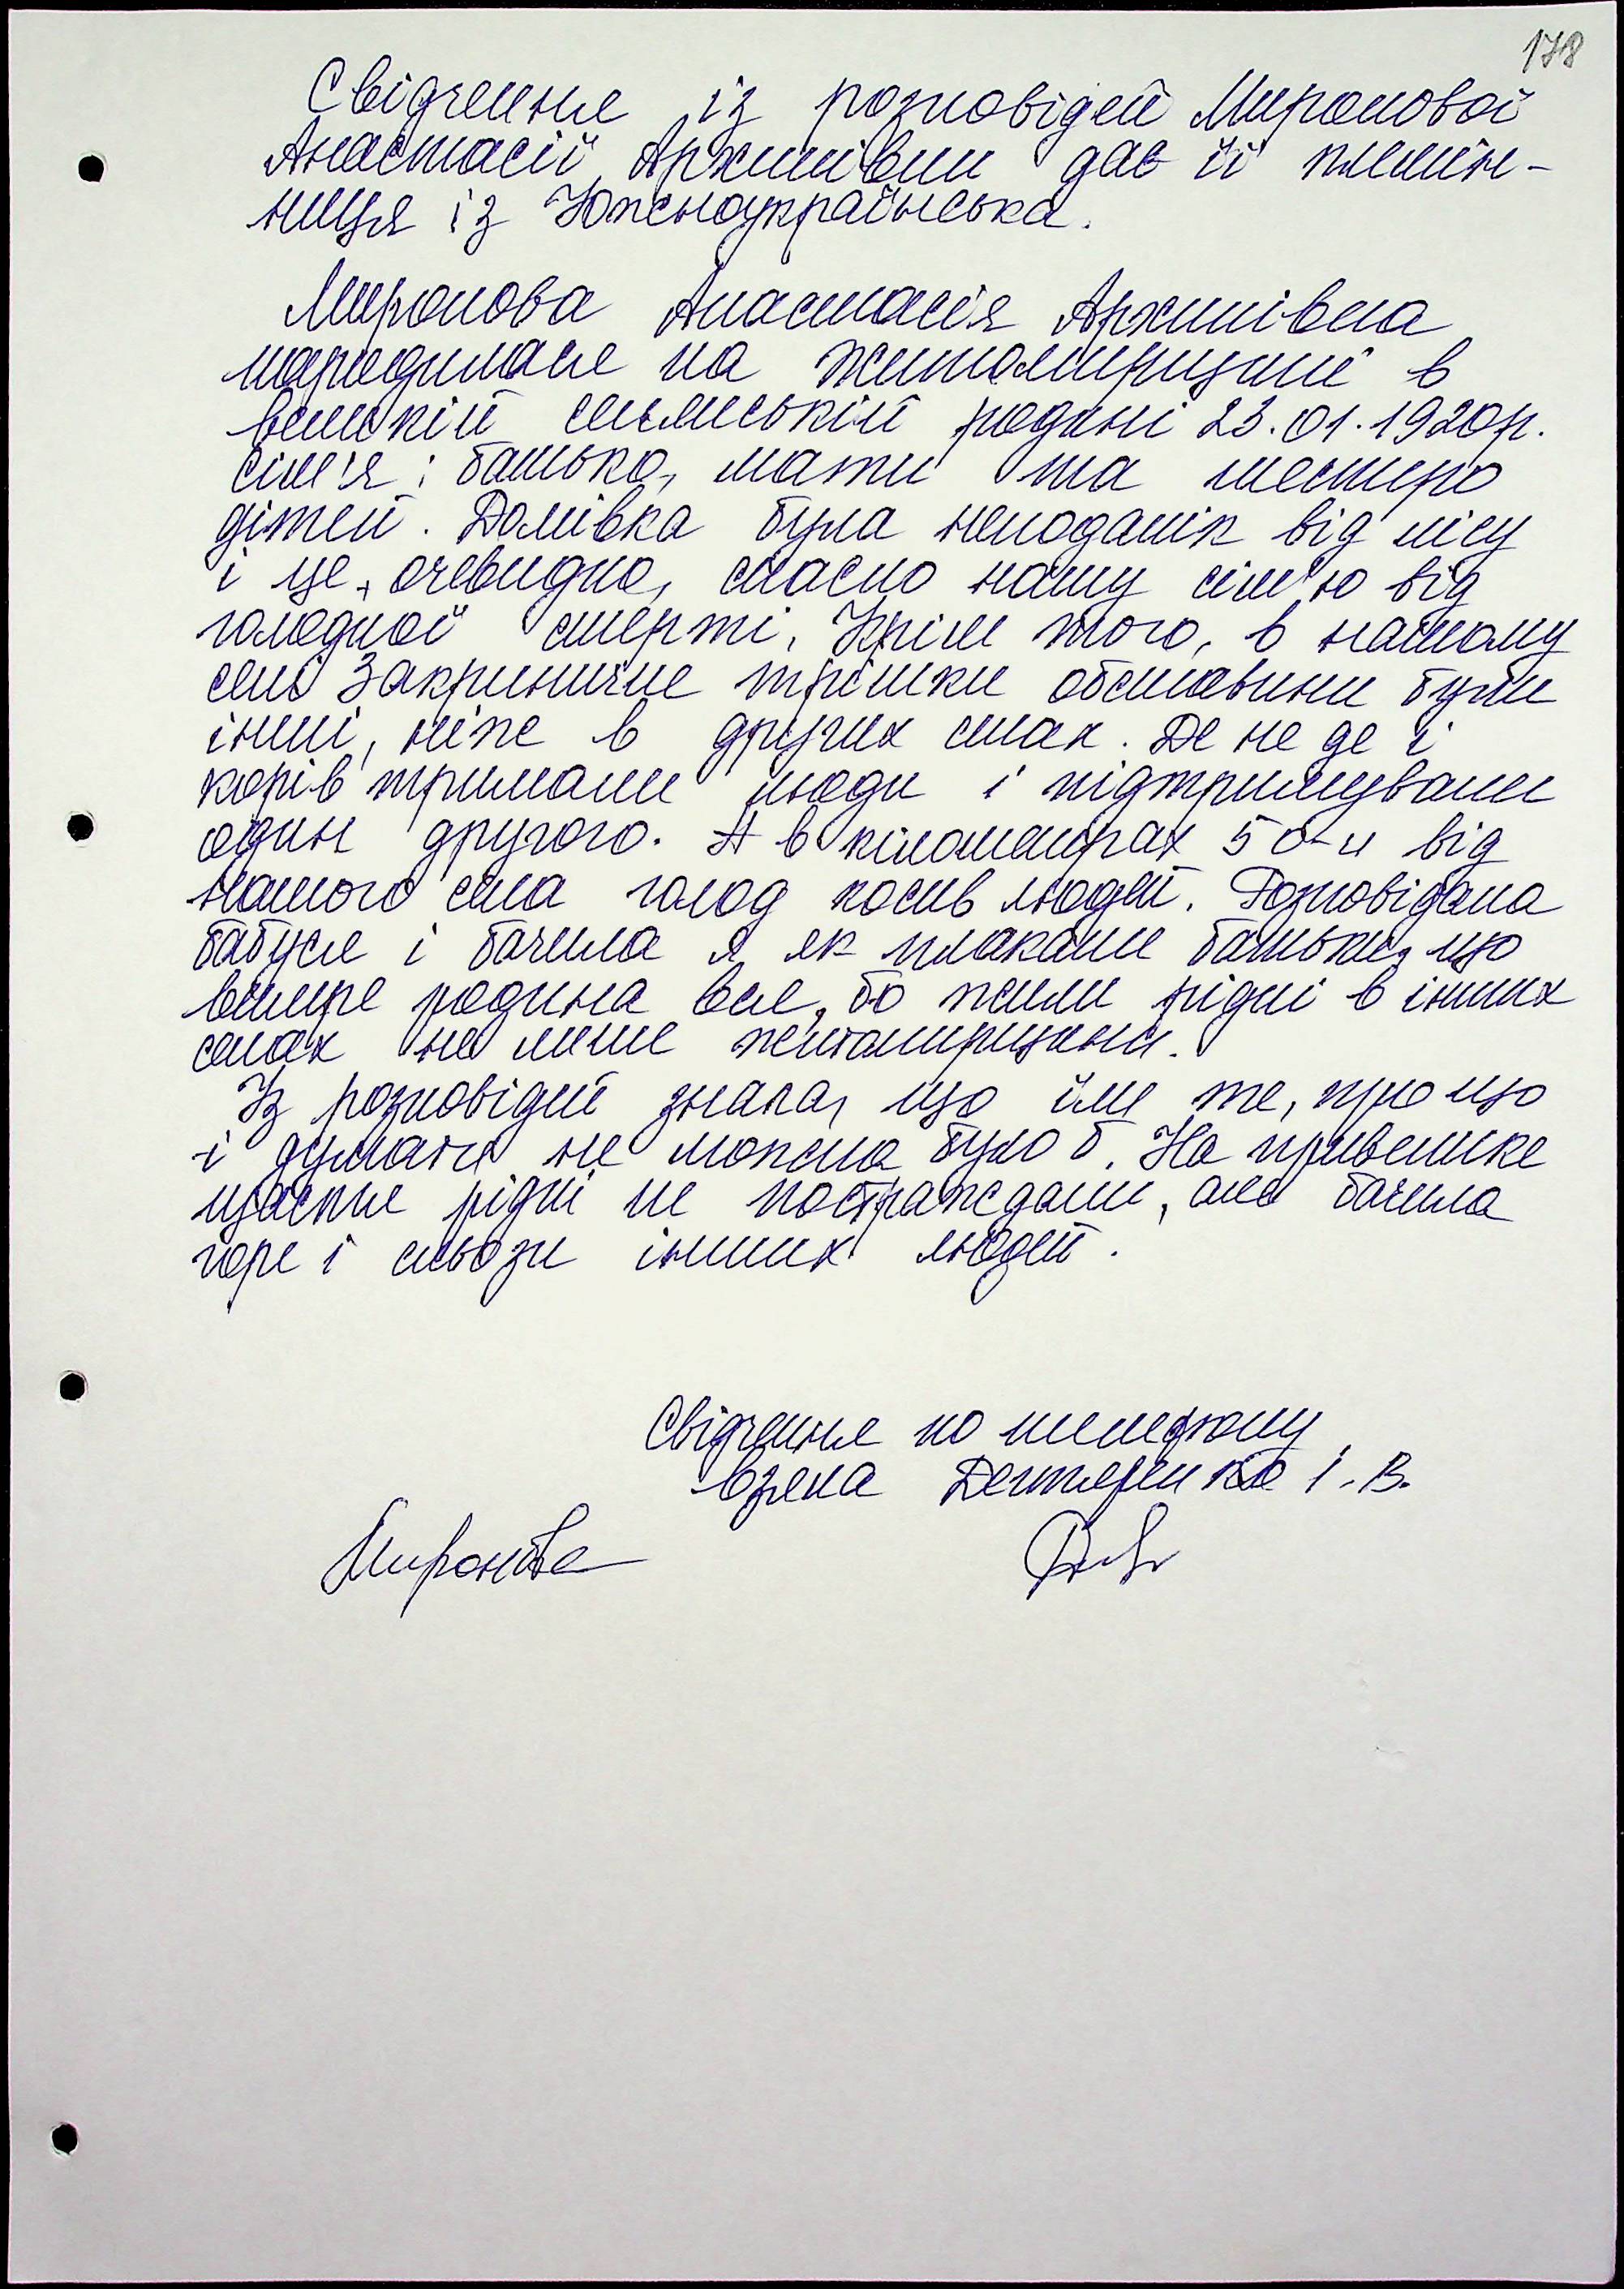 178
Свідчення із розповідей Миронової
Анастасії Архипівни дає її племін-
ниця із Южноукраїнська.
Миронова Анастасія Архипівна
народилася на Житомирщині в
великій сільській родині 23.01.1920р.
Сім'я: батько, мати та шестеро
дітей. Домівка була неподалік від лісу
і це, очевидно, спасло нашу сім'ю від
голодної смерті. Крім того, в нашому
селі Закриничне трішки обставини були
інші, ніж в других селах. Де не де і
корів тримали люди і підтримували
один другого. А в кілометрах 50-и від
нашого села голод косив людей. Розповідала
бабуся і бачила я як плакали батьки, що
вимре родина вся, бо жили рідні в інших
селах не лише житомирщини.
Із розповідей знала, що їли те, про що
і думати не можна було б. На превелике
щастя рідні не постраждали, але бачила
горе і сльози інших людей.
Свідчення по телефону
взяла Дегтяренко І.В.
Миронова